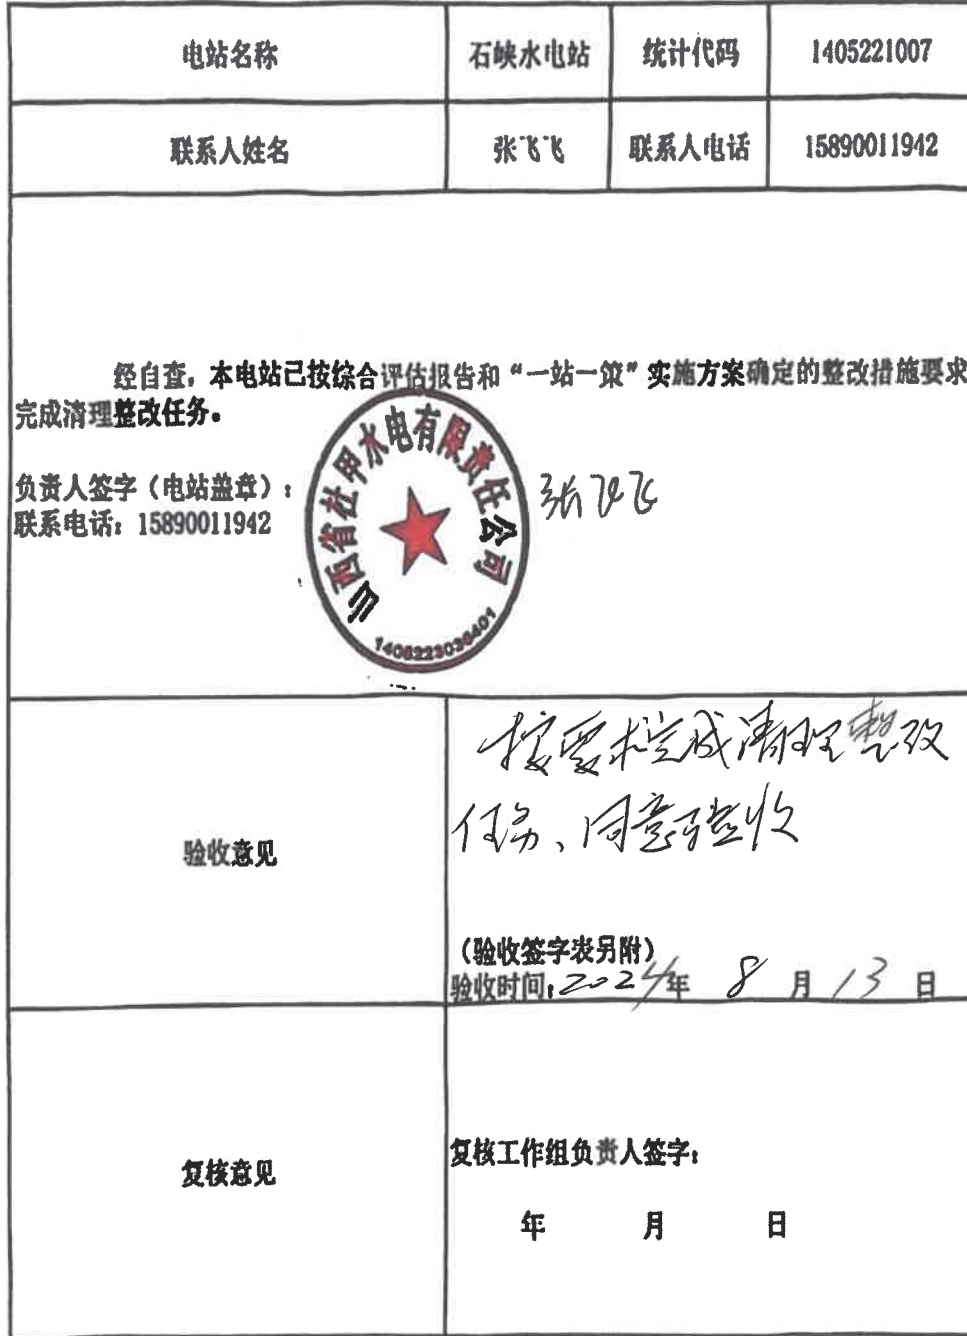 电站名称 石峡水电站 统计代码 1405221007
联系人姓名 张飞飞 联系人电话 15890011942
经自查，本电站已按综合评估报告和“一站一策”实施方案确定的整改措施要求
完成清理整改任务。
负责人签字（电站盖章）： 张飞飞
联系电话：15890011942
山西省杜甲水电有限责任公司
验收意见
按要求完成清理整改
任务、同意验收
（验收签字表另附）
验收时间：2024年 8 月 13 日
复核意见
复核工作组负责人签字：
年 月 日